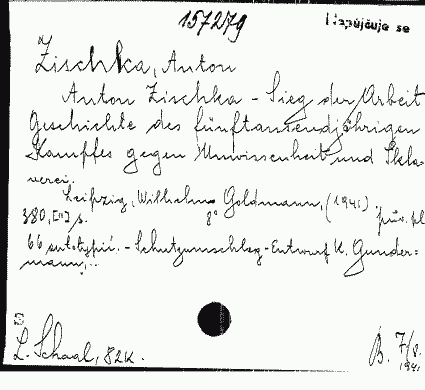 157279
Nepůjčuje se
Zischka, Anton
Anton Zischka - Sieg der Arbeit
Geschichte des fünftausendjährigen
Kampffes gegen Unwissenheit und Skla-
verei.
Leipzig, Wilhelm Goldmann, (1941).
380, [II] s. 8° pův. pl.
66 autotypií. - Schutzumschlag-Entwurf K. Gunder-
mann.
L. Schaal, 82K.
B. 7/8.
1941